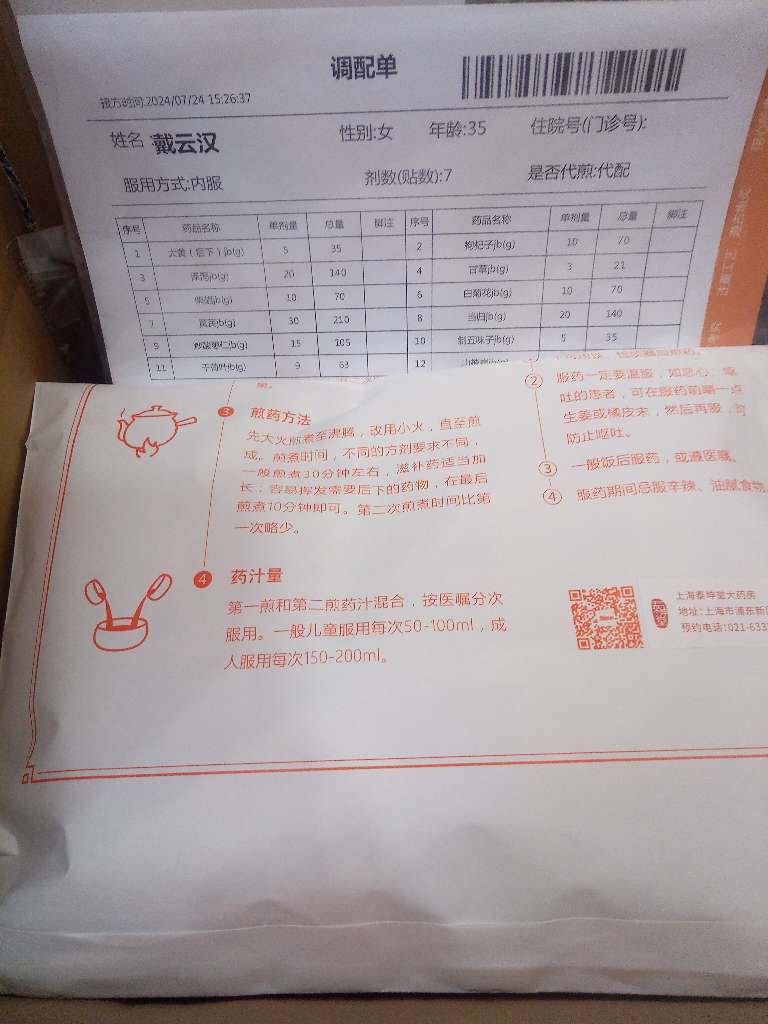 调配单
报方时间:2024/07/24 15:26:37
姓名:戴云汉 性别:女 年龄:35 住院号(门诊号):
服用方式:内服 剂数(贴数):7 是否代煎:代配
序号 药品名称 单剂量 总量 脚注 序号 药品名称 单剂量 总量 脚注
1 大黄(后下)jb(g) 5 35 2 枸杞子jb(g) 10 70
3 泽泻jb(g) 20 140 4 甘草jb(g) 3 21
5 jb(g) 10 70 6 白菊花jb(g) 10 70
7 黄芪jb(g) 30 210 8 当归jb(g) 20 140
9 炒酸枣仁jb(g) 15 105 10 制五味子jb(g) 5 35
11 干荷叶jb(g) 9 63 12
3 煎药方法
先大火煎煮至沸腾,改用小火,直至煎
成。煎煮时间,不同的方剂要求不同,
一般煎煮30分钟左右,滋补药适当加
长;容易挥发需要后下的药物,在最后
煎煮10分钟即可。第二次煎煮时间比第
一次略少。
4 药汁量
第一煎和第二煎药汁混合,按医嘱分次
服用。一般儿童服用每次50-100ml,成
人服用每次150-200ml。
2 服药一定要温服,如恶心、呕
吐的患者,可在服药前嚼一点
生姜或橘皮末,然后再服,可
防止呕吐。
3 一般饭后服药,或遵医嘱。
4 服药期间忌服辛辣、油腻食物
上海泰坤堂大药房
地址:上海市浦东新区
预约电话:021-633